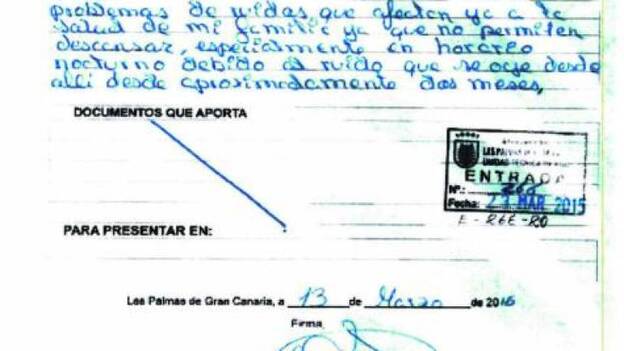 problemas de ruidos que afectan ya a la
salud de mi familia ya que no permiten
descansar, especialmente en horario
nocturno debido al ruido que se oye desde
alli desde aproximadamente dos meses,
DOCUMENTOS QUE APORTA
UNIDAD TÉCNICA
ENTRADA
Nº: 266
Fecha: MAR 2015
E - 266 - RO
PARA PRESENTAR EN:
Las Palmas de Gran Canaria, a 13 de Marzo de 2015
Firma